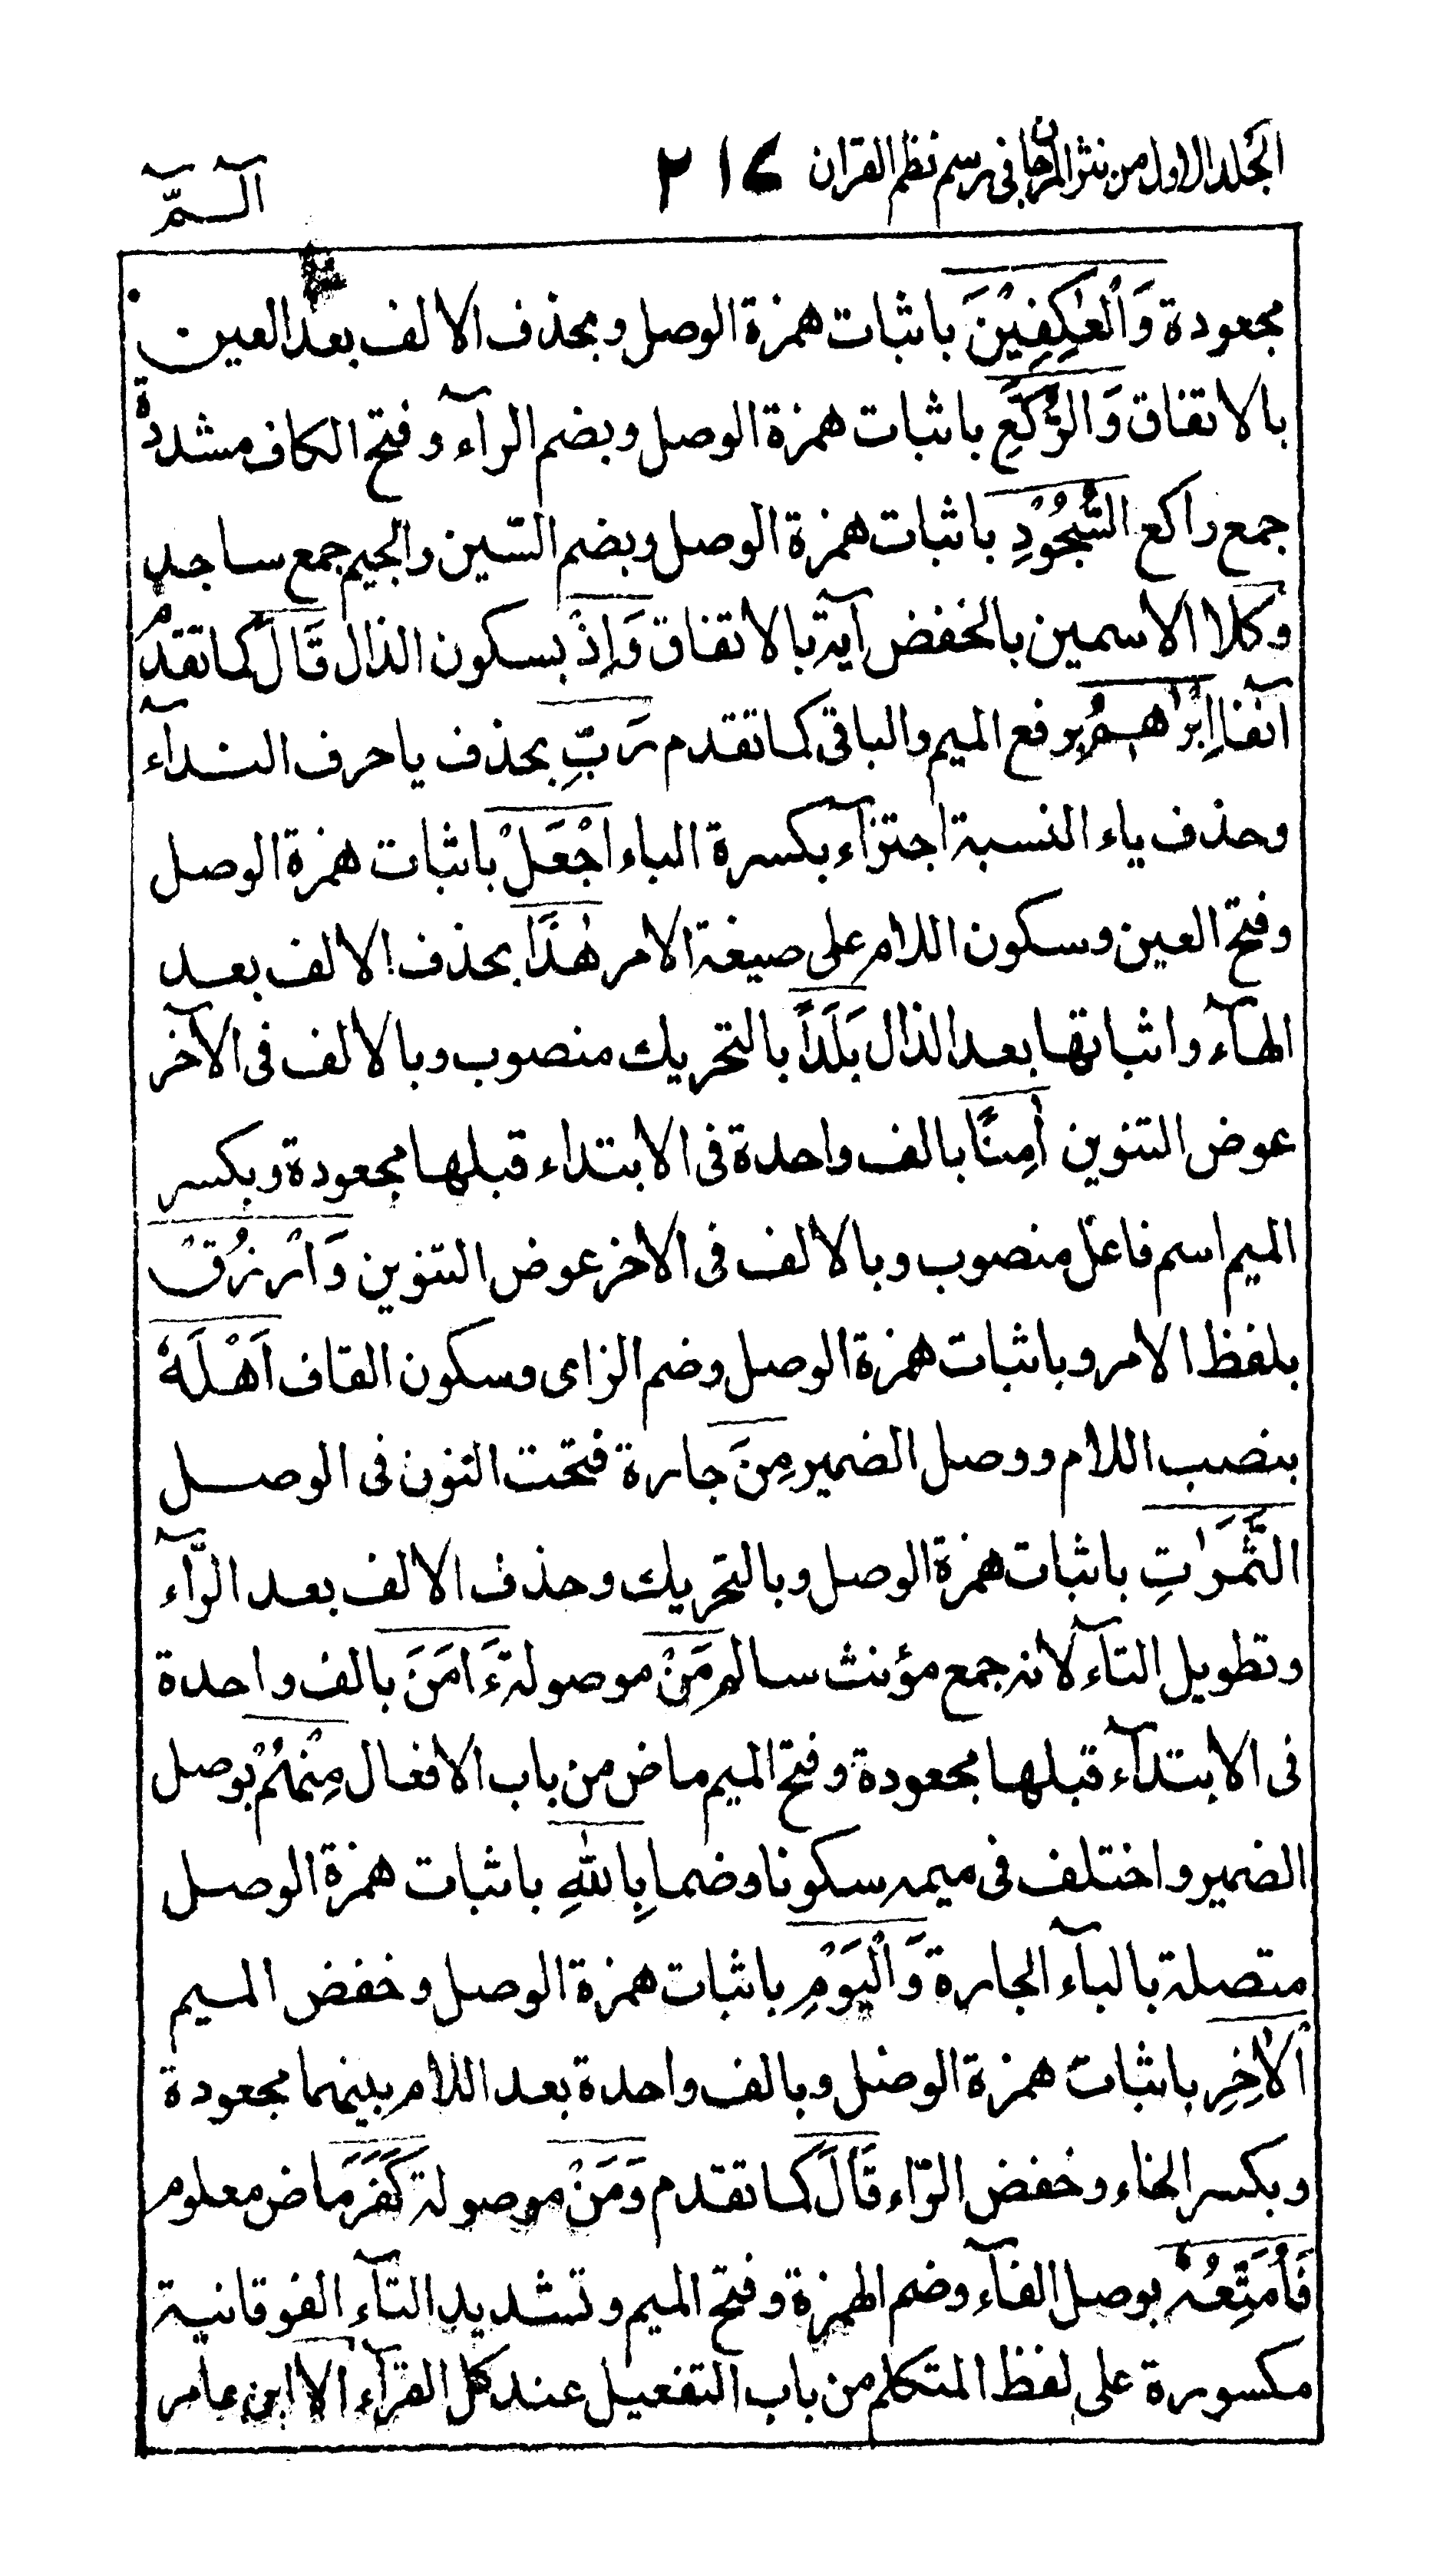 الجلد الاول من نثر المرجان فى رسم نظم القران ٢١٤ الـٓـمّٓ
مجعودة وَالْعٰكِفِيْنَ باثبات همزة الوصل وبحذف الالف بعد العين
بالاتفاق وَالرُّكَّعِ باثبات همزة الوصل وبضم الرآء وفتح الكاف مشددة
جمع راكع السُّجُوْدِ باثبات همزة الوصل وبضم السّين والجيم جمع ساجد
وكلا الاسمين بالخفض آية بالاتفاق وَاِذْ بسكون الذال قَالَ كما تقدم
آنفا اِبْرٰهٖمُ برفع الميم والباقى كما تقدم رَبِّ بحذف يا حرف النداء
وحذف ياء النسبة اجتزآء بكسرة الباء اجْعَلْ باثبات همزة الوصل
وفتح العين وسكون اللام على صيغة الامر هٰذَا بحذف الالف بعد
الهآء واثباتها بعد الذال بَلَدًا بالتحريك منصوب وبالالف فى الآخر
عوض التنوين اٰمِنًا بالف واحدة فى الابتداء قبلها مجعودة وبكسر
الميم اسم فاعل منصوب وبالالف فى الأخر عوض التنوين وَارْزُقْ
بلفظ الامر وباثبات همزة الوصل وضم الزاى وسكون القاف اَهْلَهٗ
بنصب اللام ووصل الضمير مِنَ جارة فتحت النون فى الوصل
الثَّمَرٰتِ باثبات همزة الوصل وبالتحريك وحذف الالف بعد الرّآء
وتطويل التآء لانه جمع مؤنث سالم مَنْ موصولة ءَامَنَ بالف واحدة
فى الابتدآء قبلها مجعودة وفتح الميم ماض من باب الافعال مِنْهُمْ بوصل
الضمير واختلف فى ميمه سكونا وضما بِاللّٰهِ باثبات همزة الوصل
متصلة بالبآء الجارة وَالْيَوْمِ باثبات همزة الوصل وخفض الميم
الْاٰخِرِ باثبات همزة الوصل وبالف واحدة بعد اللام بينهما مجعودة
وبكسر الخاء وخفض الرّاء قَالَ كما تقدم وَمَنْ موصولة كَفَرَ ماض معلوم
فَاُمَتِّعُهٗ بوصل الفآء وضم الهمزة وفتح الميم وتشديد التآء الفوقانية
مكسورة على لفظ المتكلم من باب التفعيل عند كل القرآء الا ابن عامر